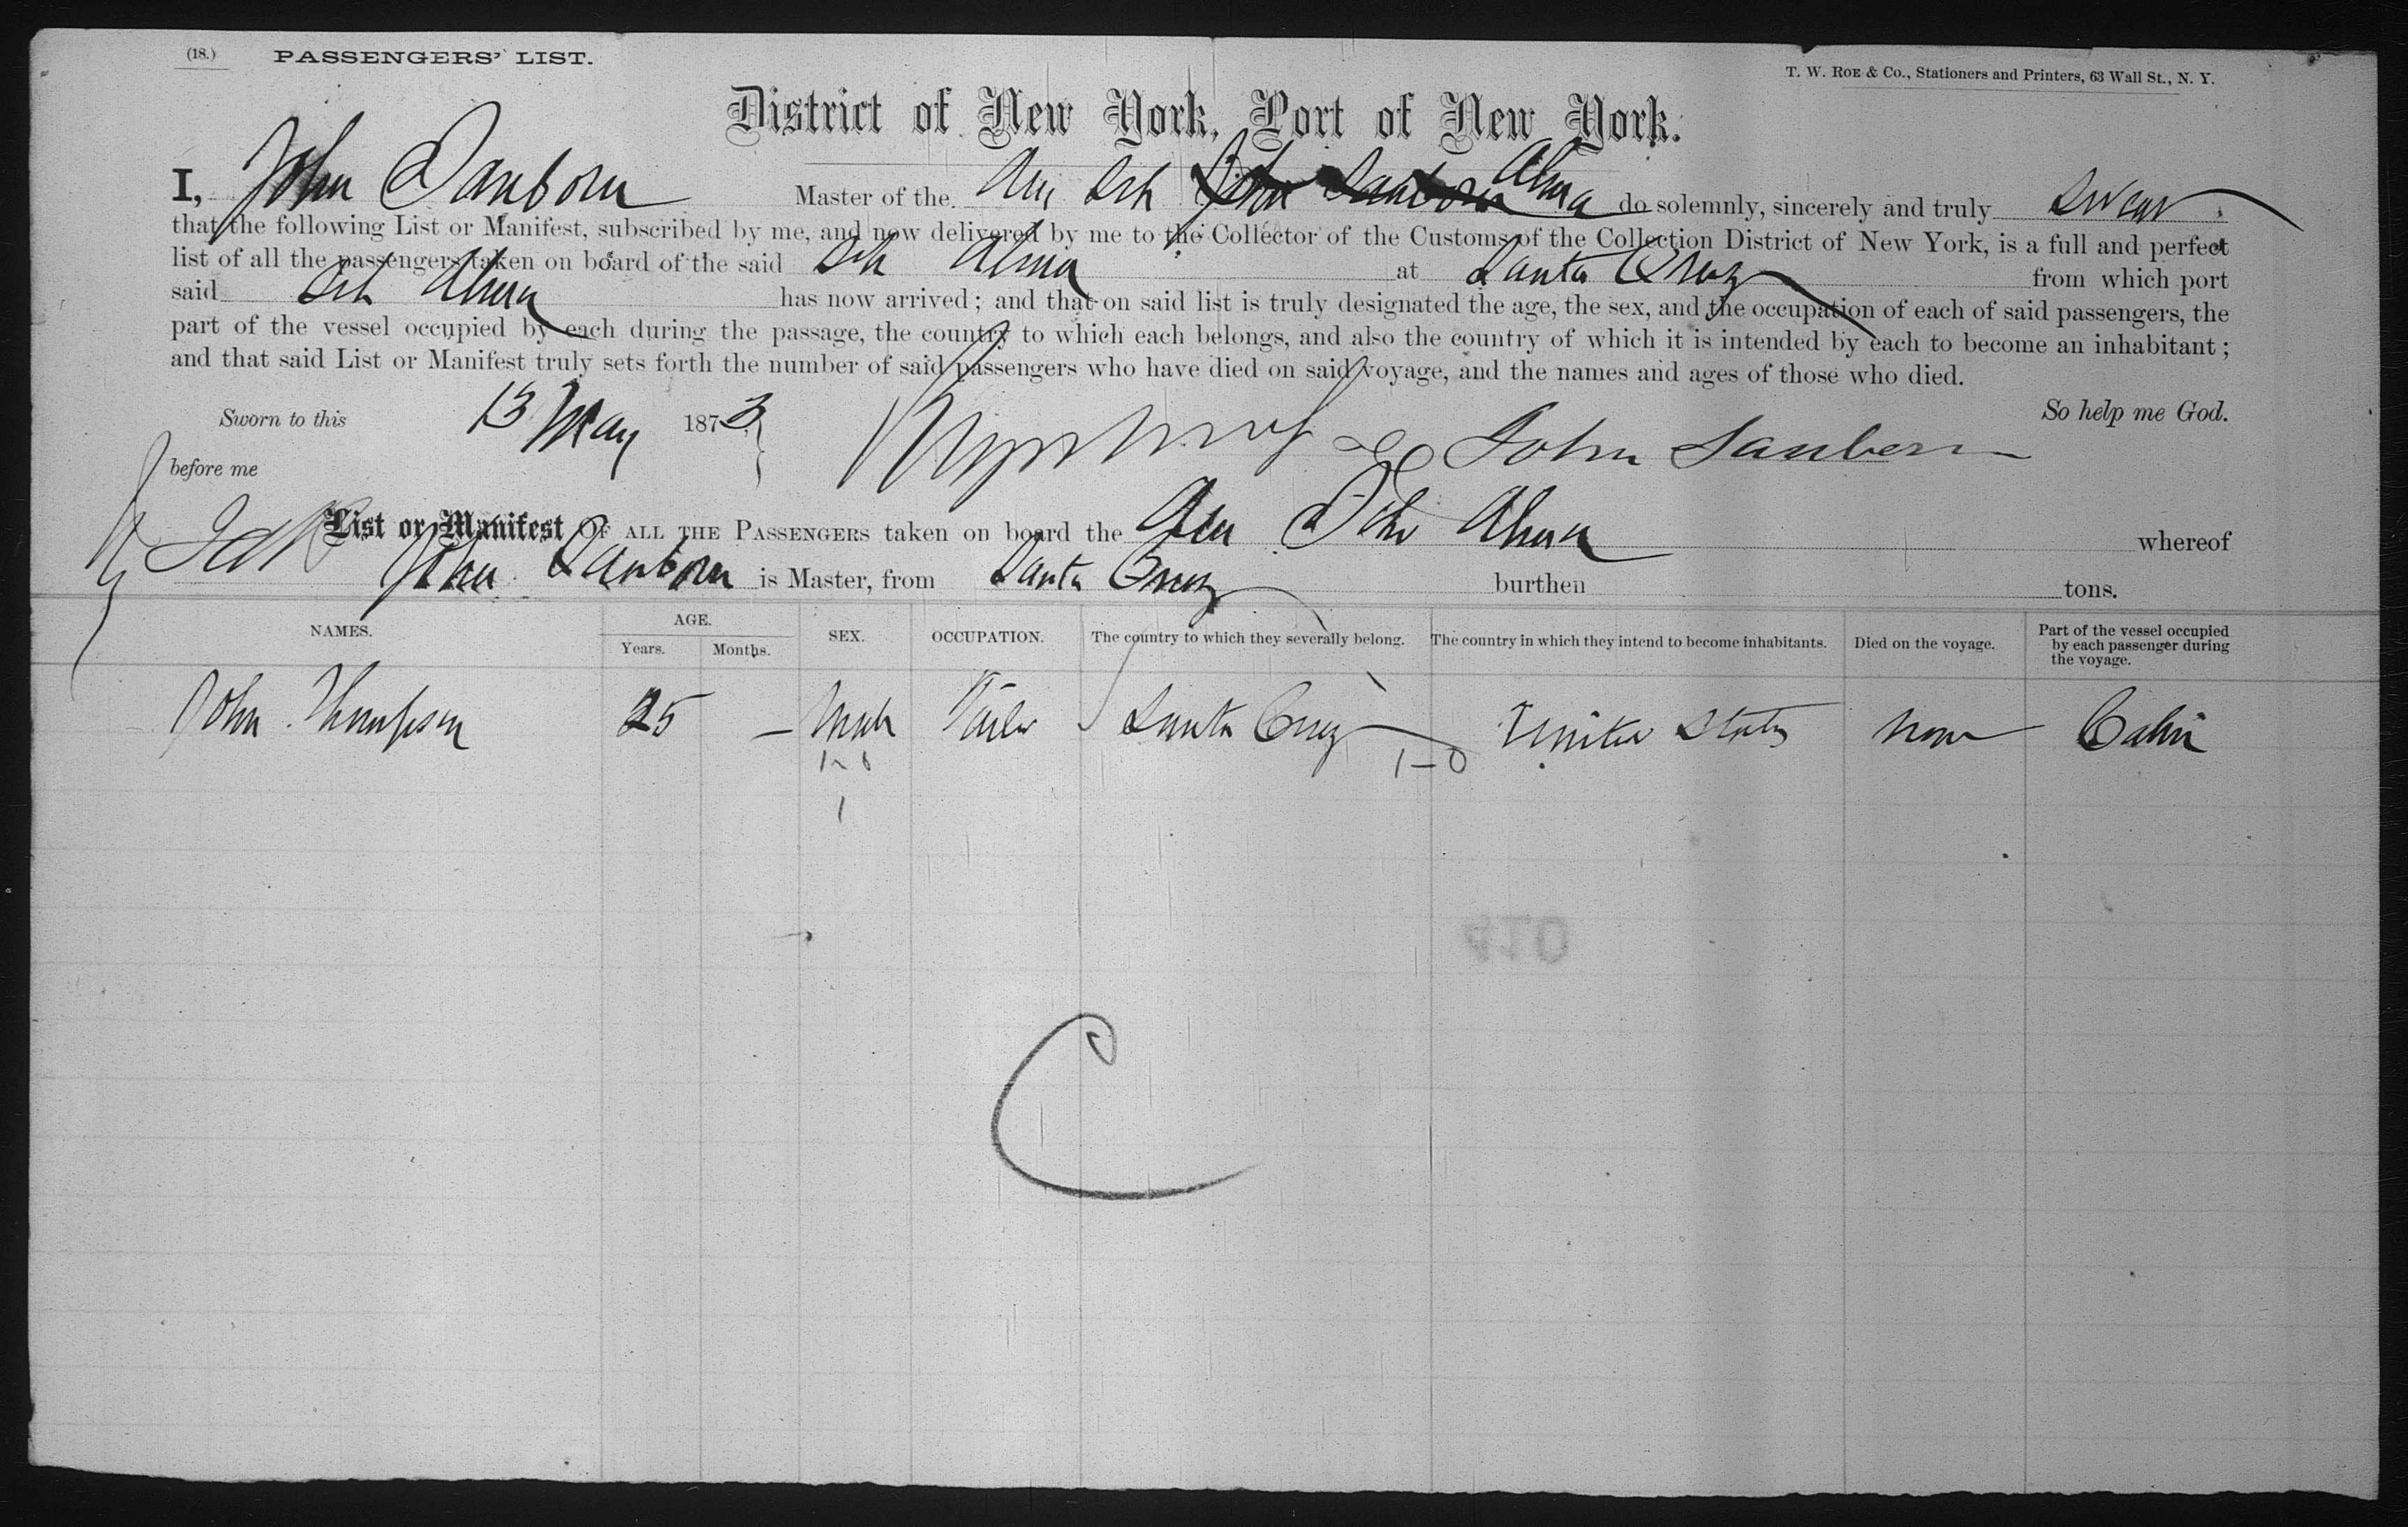 (18.) PASSENGERS' LIST.
T. W. ROE & Co., Stationers and Printers, 63 Wall St., N. Y.
District of New York, Port of New York.
I, John Sanborn Master of the Am Sch John Sanborn Alma do solemnly, sincerely and truly swear
that the following List or Manifest, subscribed by me, and now delivered by me to the Collector of the Customs of the Collection District of New York, is a full and perfect
list of all the passengers taken on board of the said Sch Alma at Santa Cruz from which port
said Sch Alma has now arrived; and that on said list is truly designated the age, the sex, and the occupation of each of said passengers, the
part of the vessel occupied by each during the passage, the country to which each belongs, and also the country of which it is intended by each to become an inhabitant;
and that said List or Manifest truly sets forth the number of said passengers who have died on said voyage, and the names and ages of those who died.
Sworn to this 13 May 1873 So help me God.
before me John Sanborn
List or Manifest OF ALL THE PASSENGERS taken on board the Am Schr Alma whereof
John Sanborn is Master, from Santa Cruz burthen tons.
NAMES. AGE. Years. Months. SEX. OCCUPATION. The country to which they severally belong. The country in which they intend to become inhabitants. Died on the voyage. Part of the vessel occupied by each passenger during the voyage.
John Thompson 25 — Male Santa Cruz United States none Cabin
1-0 1-0
1
410
C